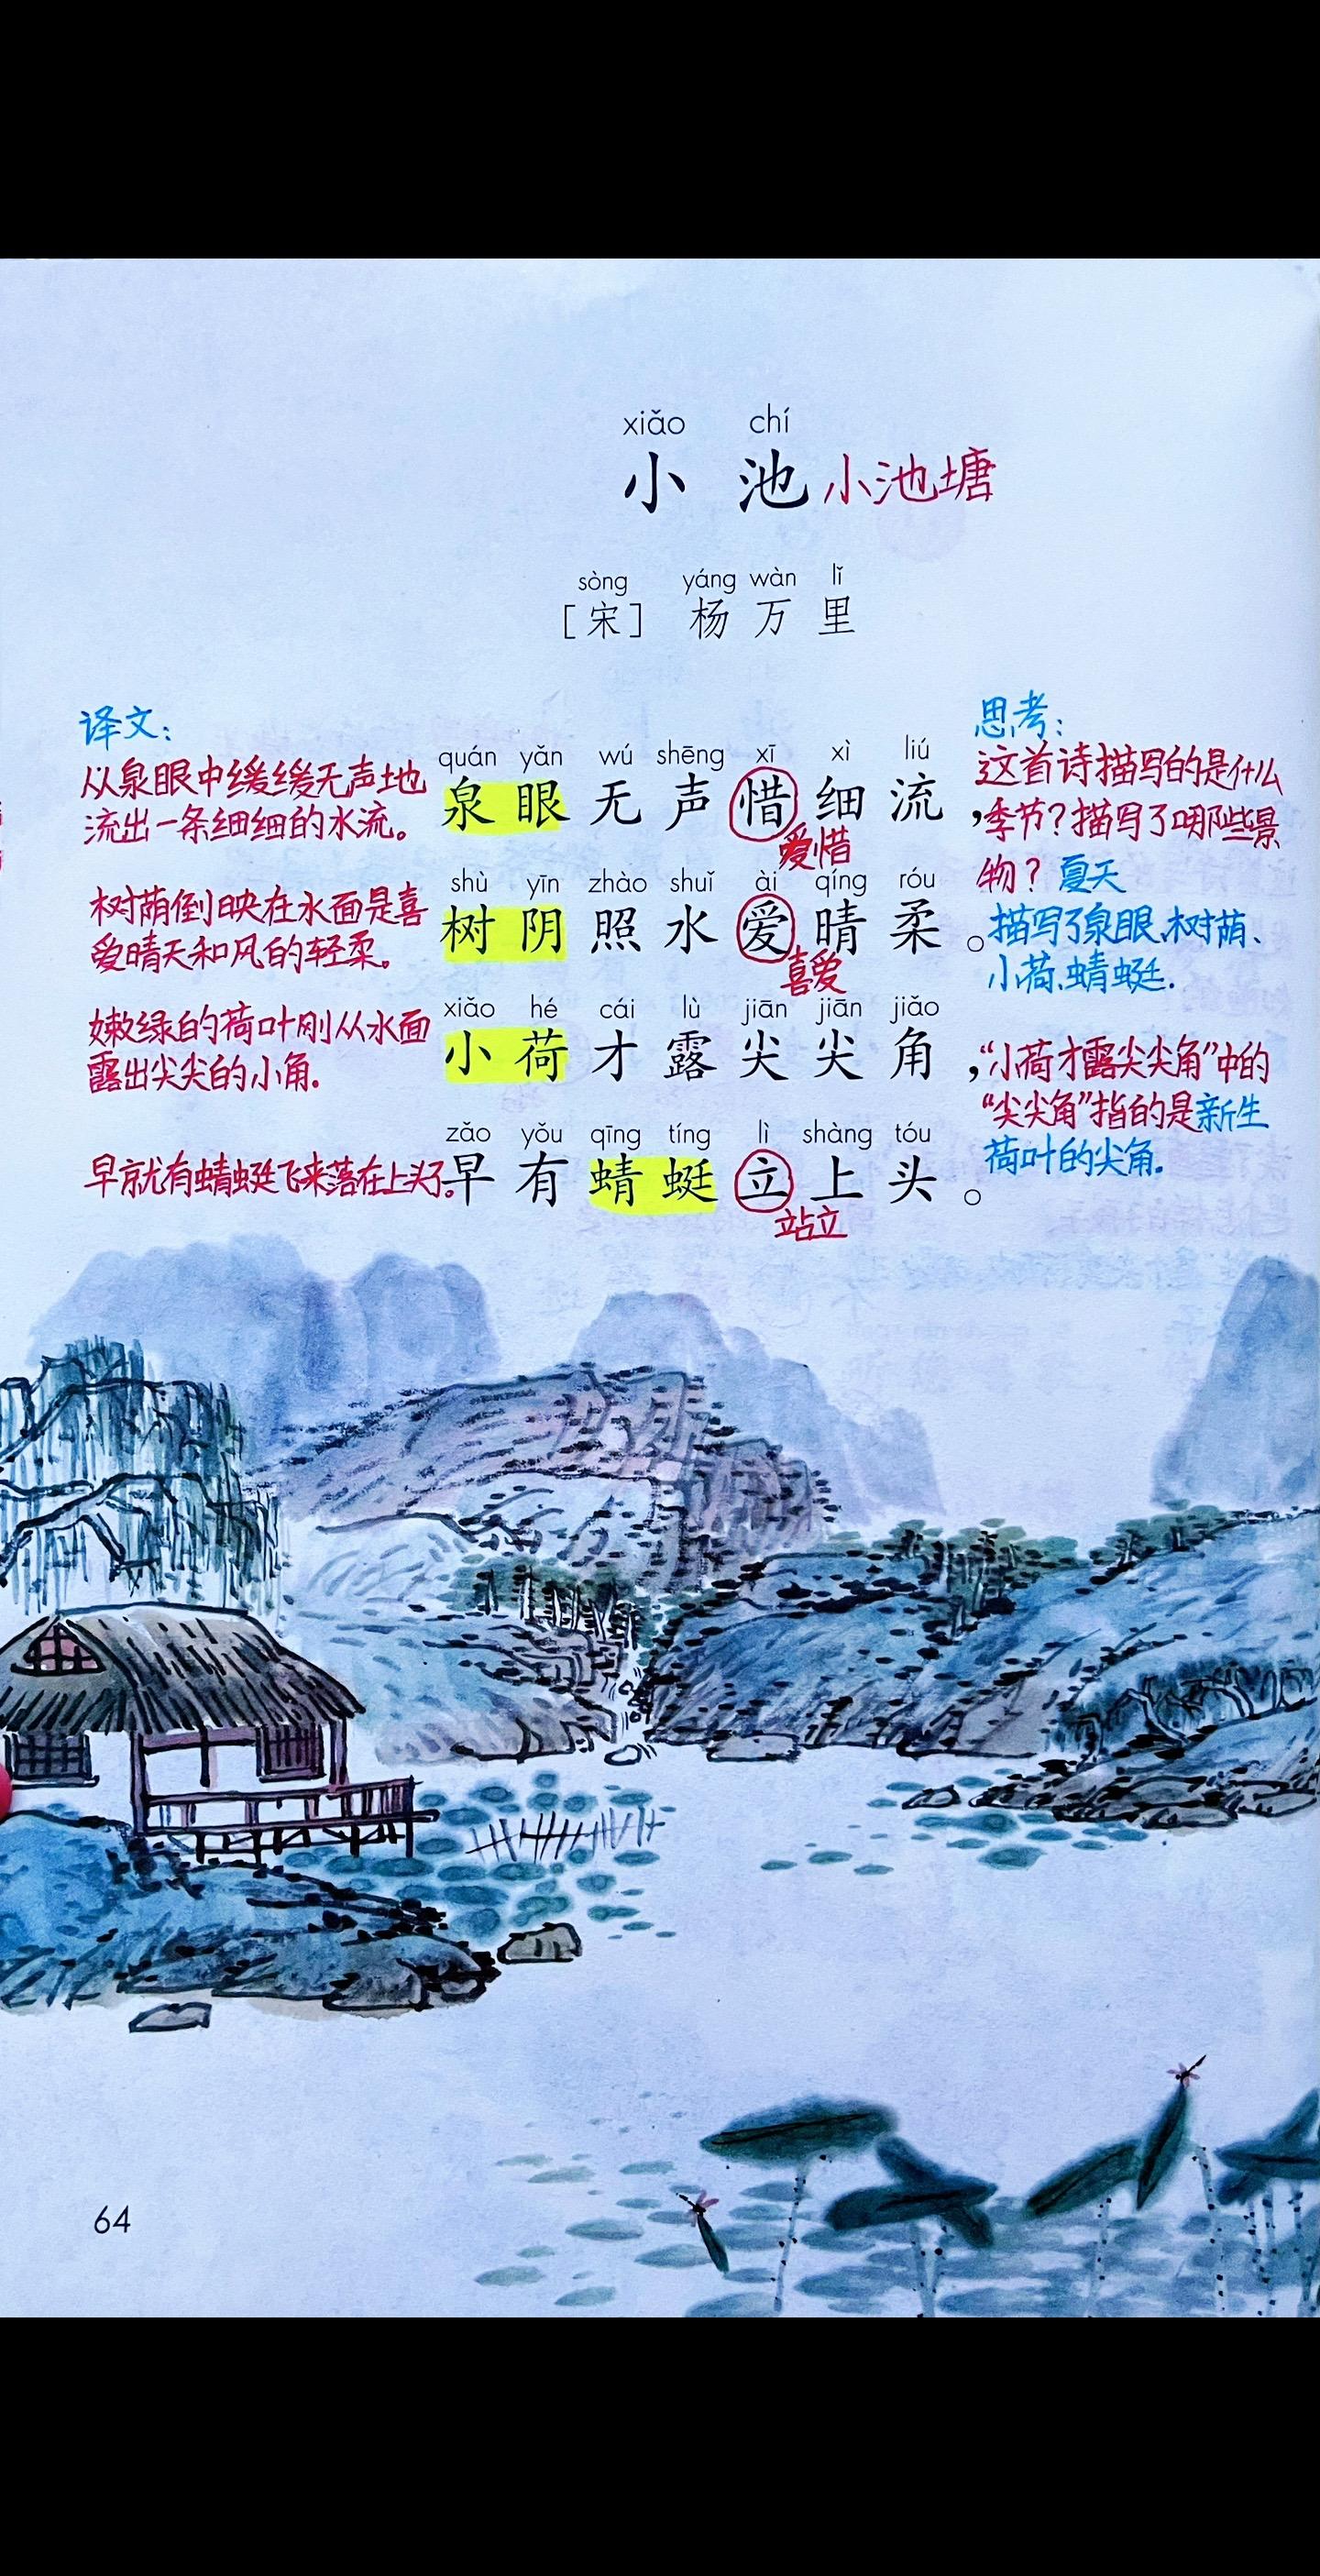 xiǎo chí
小池 小池塘
sòng yáng wàn lǐ
［宋］ 杨万里
译文：
从泉眼中缓缓无声地
流出一条细细的水流。
树荫倒映在水面是喜
爱晴天和风的轻柔。
嫩绿的荷叶刚从水面
露出尖尖的小角.
早就有蜻蜓飞来落在上头了。
quán yǎn wú shēng xī xì liú
泉眼无声惜细流，
爱惜
shù yīn zhào shuǐ ài qíng róu
树阴照水爱晴柔。
喜爱
xiǎo hé cái lù jiān jiān jiǎo
小荷才露尖尖角，
zǎo yǒu qīng tíng lì shàng tóu
早有蜻蜓立上头。
站立
思考：
这首诗描写的是什么
季节？描写了哪些景
物？夏天
描写了泉眼、树荫、
小荷、蜻蜓.
“小荷才露尖尖角”中的
“尖尖角”指的是新生
荷叶的尖角.
64